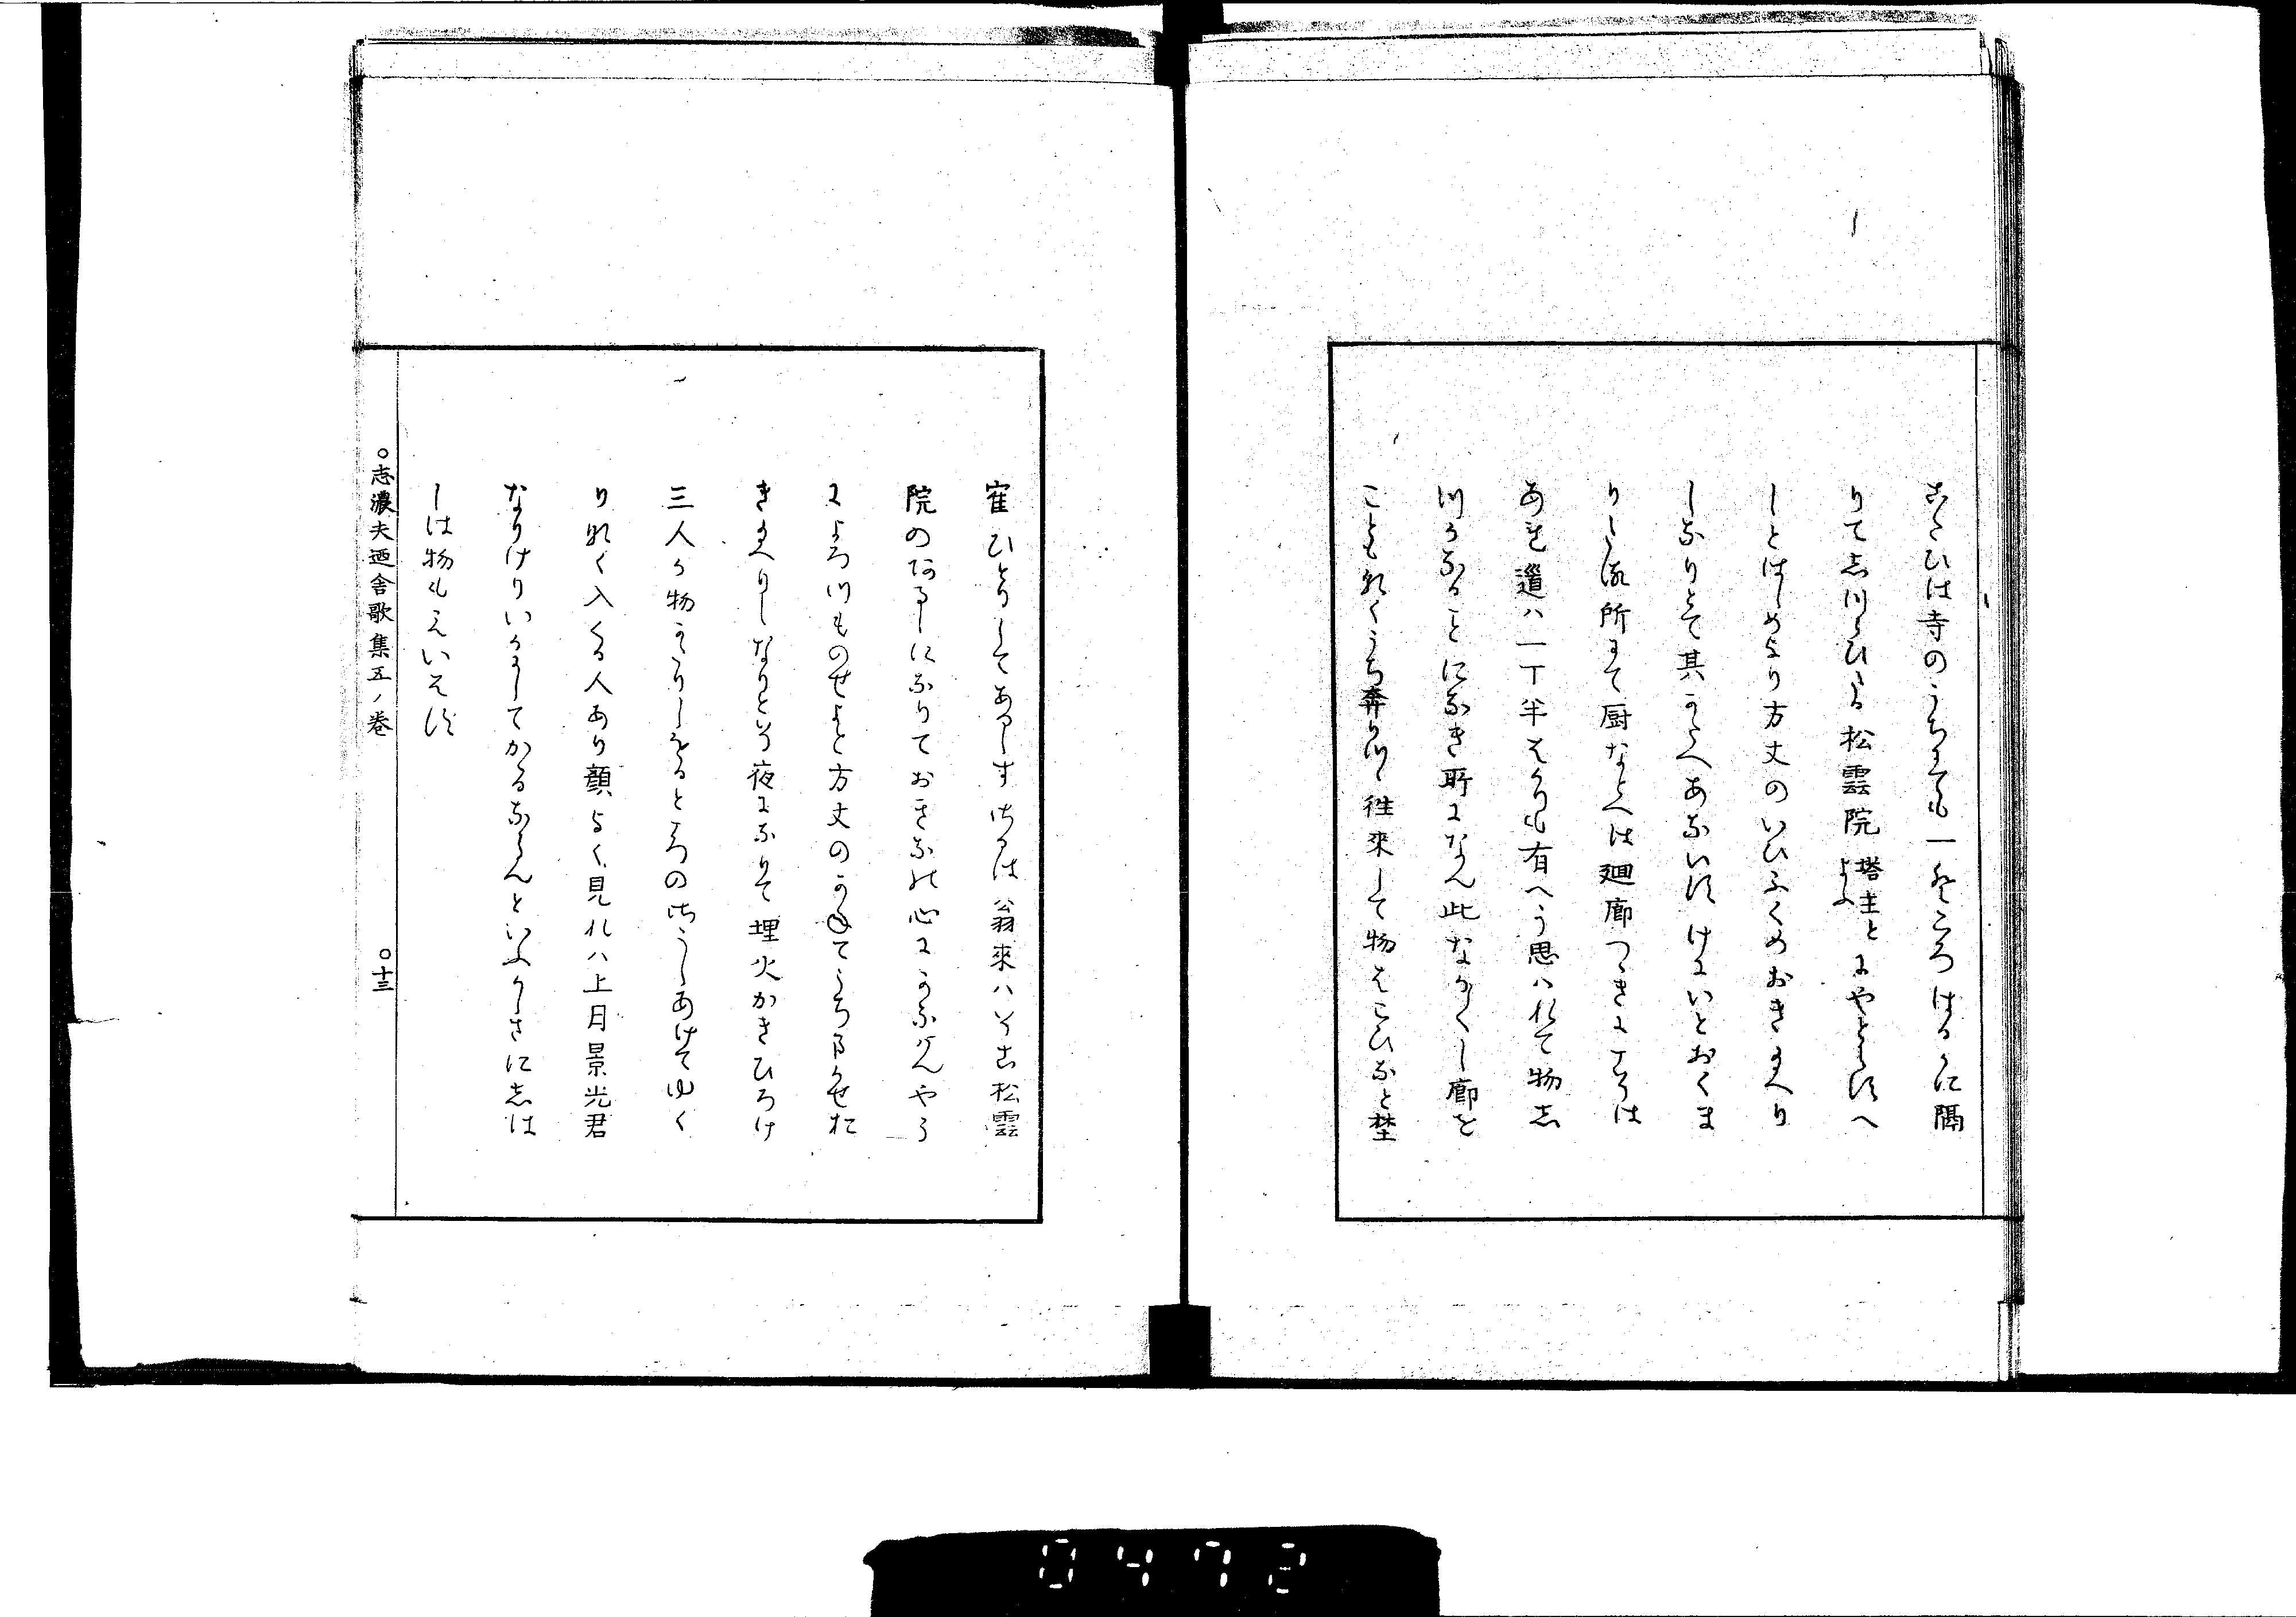 こたひは寺のうちにても一ところはるかに隔
りてしつらひたる松雲院塔主とよふにやとらすへ
しとはしめより方丈のいひふくめおきたまへり
しなりとて其かたへあないす けにいとおくま
りし所にて厨なとへは廻廊つゝきにては
あれ道ハ一丁半はかりも有へう思ハれて物し
つかなることになき所になん此なかくし廊を
こともなくうち奔りつゝ往来して物はこひなと埜
崔ひとりしてあるしすさるは翁来ハいてこ松雲
院のあるしになりておきなの心にかなはんやう
によろつものせよと方丈のかねてうちまかせお
きたまへりしなりといふ夜になりて埋火かきひろけ
三人か物かたりしをるところのさうしあけてゆく
りなく入くる人あり顔よく見れハ上月景光君
なりけりいかにしてかるならんといふかしさにしは
しは物もえいはす
○志濃夫廼舎歌集五ノ巻 ○十三
0472